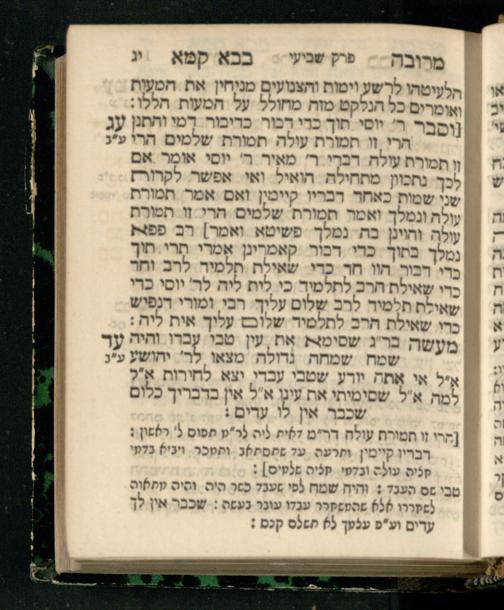 מרובה פרק שביעי בבא קמא יג
הלעיטהו לרשע וימות והצנועים מניחין את המעות
ואומרים כל הנלקט מזה מחולל על המעות הללו:
[וסבר ר' יוסי תוך כדי דבור כדיבור דמי והתנן עג
הרי זו תמורת עולה תמורת שלמים הרי ע״ב
זו תמורת עולה דברי ר' מאיר ר' יוסי אומר אם
לכך נתכוון מתחילה הואיל ואי אפשר לקרות
שני שמות כאחד דבריו קיימין ואם אמר תמורת
עולה ונמלך ואמר תמורת שלמים הרי זו תמורת
עולה והוינן בה נמלך פשיטא ואמר] רב פפא
נמלך בתוך כדי דבור קאמרינן אמרי תרי תוך
כדי דבור הוו חד כדי שאילת תלמיד לרב וחד
כדי שאילת הרב לתלמיד כי לית ליה לר' יוסי כדי
שאילת תלמיד לרב שלום עליך רבי ומורי דנפיש
כדי שאילת הרב לתלמיד שלום עליך אית ליה:
מעשה בר״ג שסימא את עין טבי עבדו והיה עד
שמח שמחה גדולה מצאו לר' יהושע ע״ב
א״ל אי אתה יודע שטבי עבדי יצא לחירות א״ל
למה א״ל שסימיתי את עינו א״ל אין בדבריך כלום
שכבר אין לו עדים:
[הרי זו תמורת עולה דר״מ דאית ליה לר״מ תפוס ל' ראשון:
דבריו קיימין ותרעה עד שתסתאב ותמכר ויביא בדמי
חליה עולה ובדמי חליה שלמים]:
טבי שם העבד: והיה שמח לפי שעבד כשר היה והיה מתאוה
לשחררו אלא שהמשחרר עבדו עובר בעשה: שכבר אין לך
עדים וע״פ עצמך לא תשלם קנס: